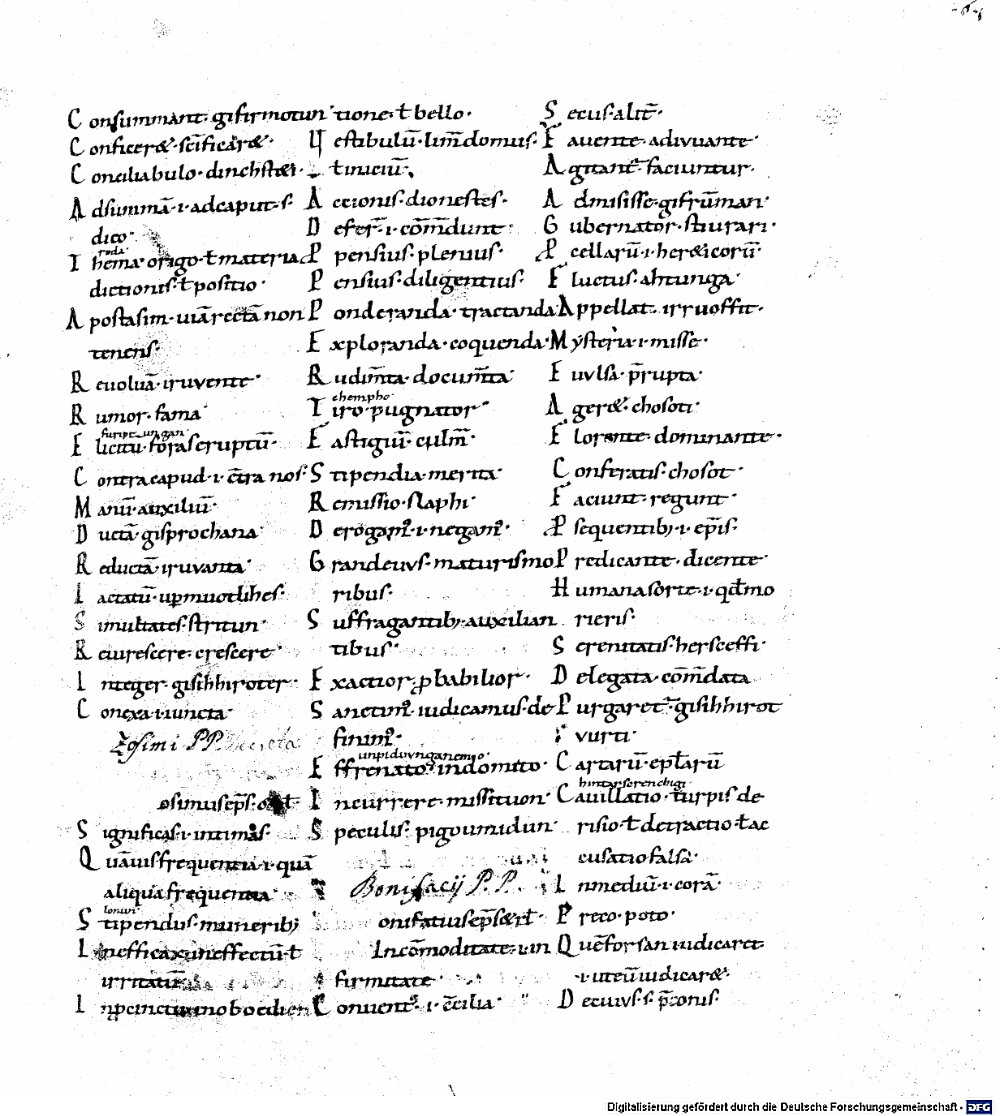 Consummant· gifirmotun
Conficere&· scificare&·
Conciliabulo· dinchst&i·
Adsummā·i·adcaput·s·
dico·
roda·
Thema· origo·ł materia
dictionis·ł positio·
Apostasim·uiārectānon
tenens·
Reuoluā·iruuente·
Rumor·fama·
Elicitū·forascruptū·
Contracapud·i·c̄tra nos·
Manū·auxiliū·
Ductā·gisprochana·
Reductā·iruuanta·
Simultates·stritun·
Reuirescere·crescere·
Integer·gisihhiroter·
Conexa·iuncta·
Zosimi P.P.
Significas·i·intimas·
Quāuisfrequentia·i·quā
aliquafrequentia·
Stipendiis·munerib;
Inefficax·ineffectū·ł
irritatū·
Inprocinctu·inoboedien
tione·ł bello·
Uestibulū·limēdomus·
ł iniciū·
Accionis·dionestes·
Defer̄·i·com̄dunt·
Ppensius·plenius·
Pensius·diligentius·
Ponderanda·tractanda
Exploranda·coquenda·
Rudim̄ta·docum̄ta·
chempho·
Tiro·pugnator·
Fastigiū·culm̄·
Stipendia·merita·
Remissio·slaphi·
Derogam᷒·i·negam᷒·
Grandeuus·maturismo
ribus·
Suffragantib;·auxilian
tibus·
Exactior·ꝓbabilior·
Sancim᷒·iudicamus·de
finim᷒·
unpiduunganemo·
Effrenato·indomito·
Incurrere·missituon·
Speculis·pigoumidun·
Bonifacij P.P.
onifatiusep̄s&rł·
Incōmoditate·i·in
firmitate·
Conuent᷒·i·c̄cilia·
Secus·alit̄·
Fauente·adiuuante·
Agitant᷒·faciuntur·
Admisisse·gifrūmari·
Gubernator·stiurari·
Pcellarū·i·her&icorū·
Fluctus·ahtunga·
Appellat·irruoffit·
Mysteria·i·misse·
Euulsa·p̄rupta·
Ager&·chosoti·
Florente·dominante·
Conferatis·chosot·
Faciunt·regunt·
Psequentib;·i·ep̄is·
Predicante·dicente·
Humanasorte·i·qđmo
rieris·
Serenitatis·hersceffi·
Delegata·com̄data
Purgaret᷒·gisihhirot
vurti·
Cartarū·epłarū
hintarserenchigi
Cauillatio·turpis de
risio·ł detractio·ł ac
cusatiofalsa·
Inmediū·i·corā·
Preco·poto·
Quēforsan iudicaret·
·i·uteūiudicar&·
Decuius·s·p̄sonis·
Digitalisierung gefördert durch die Deutsche Forschungsgemeinschaft - DFG